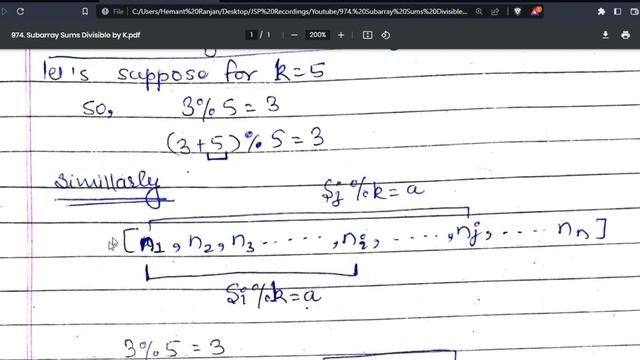 File | C:/Users/Hemant%20Ranjan/Desktop/JSP%20Recordings/Youtube/974.%20Subarray%20Sums%20Divisible...
974. Subarray Sums Divisible by K.pdf 1 / 1 200%
let's suppose for k=5
So, 3%5=3
(3+5)%5=3
Simillarly
Sj%k=a
[n1, n2, n3 ......, ni, ....., nj, ..... nn]
Si%k=a
3%5=3